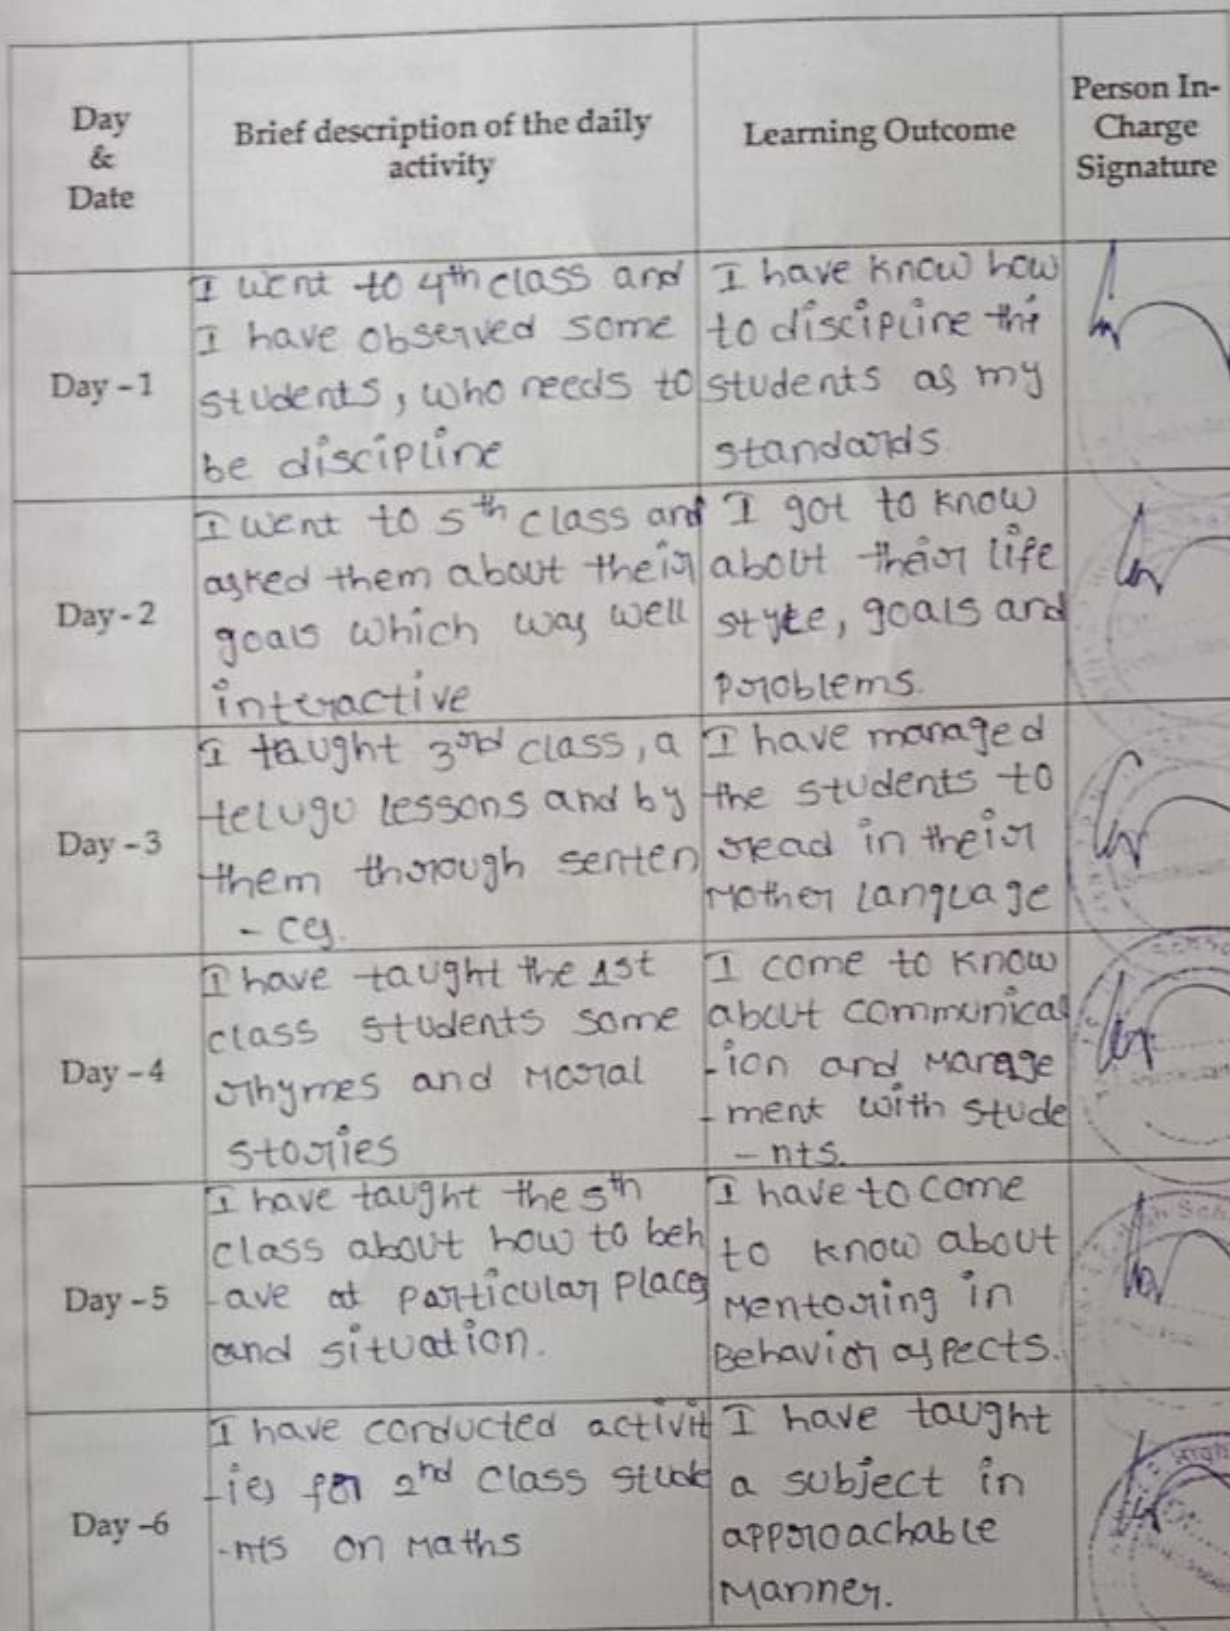 Day
&
Date
Brief description of the daily
activity
Learning Outcome
Person In-
Charge
Signature
Day - 1
I went to 4th class and
I have observed some
students, who needs to
be discipline
I have know how
to discipline the
students as my
standards.
Day - 2
I went to 5th class and
asked them about their
goals which way well
interactive
I got to know
about their life
style, goals and
problems.
Day - 3
I taught 3rd class, a
telugu lessons and by
them thorough senten
- ces.
I have managed
the students to
read in their
Mother Language
Day - 4
I have taught the 1st
class students some
rhymes and Moral
stories
I come to know
about communicat
-ion and Manage
-ment with stude
- nts.
Day - 5
I have taught the 5th
class about how to beh
-ave at particular places
and situation.
I have to come
to know about
Mentoring in
Behavior aspects.
Day -6
I have conducted activit
-ies for 2nd class stude
-nts on Maths
I have taught
a subject in
approachable
Manner.